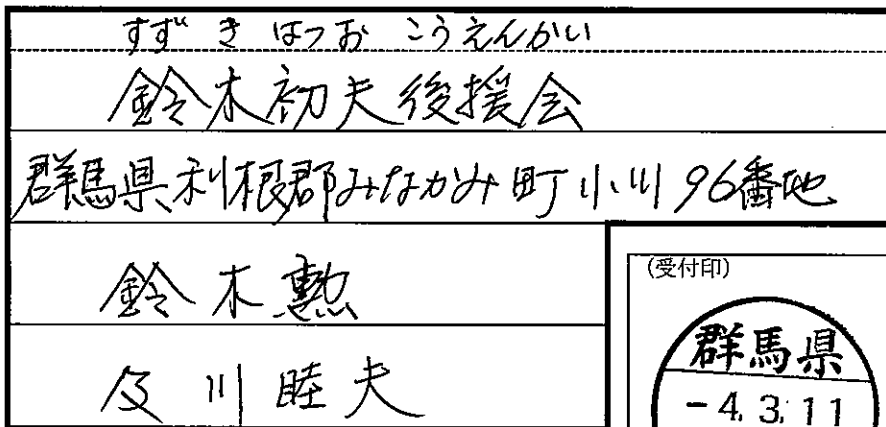 すずき はつお こうえんかい
鈴木初夫後援会
群馬県利根郡みなかみ町小川96番地
鈴木勲
及川睦夫
(受付印)
群馬県
-4.3.11